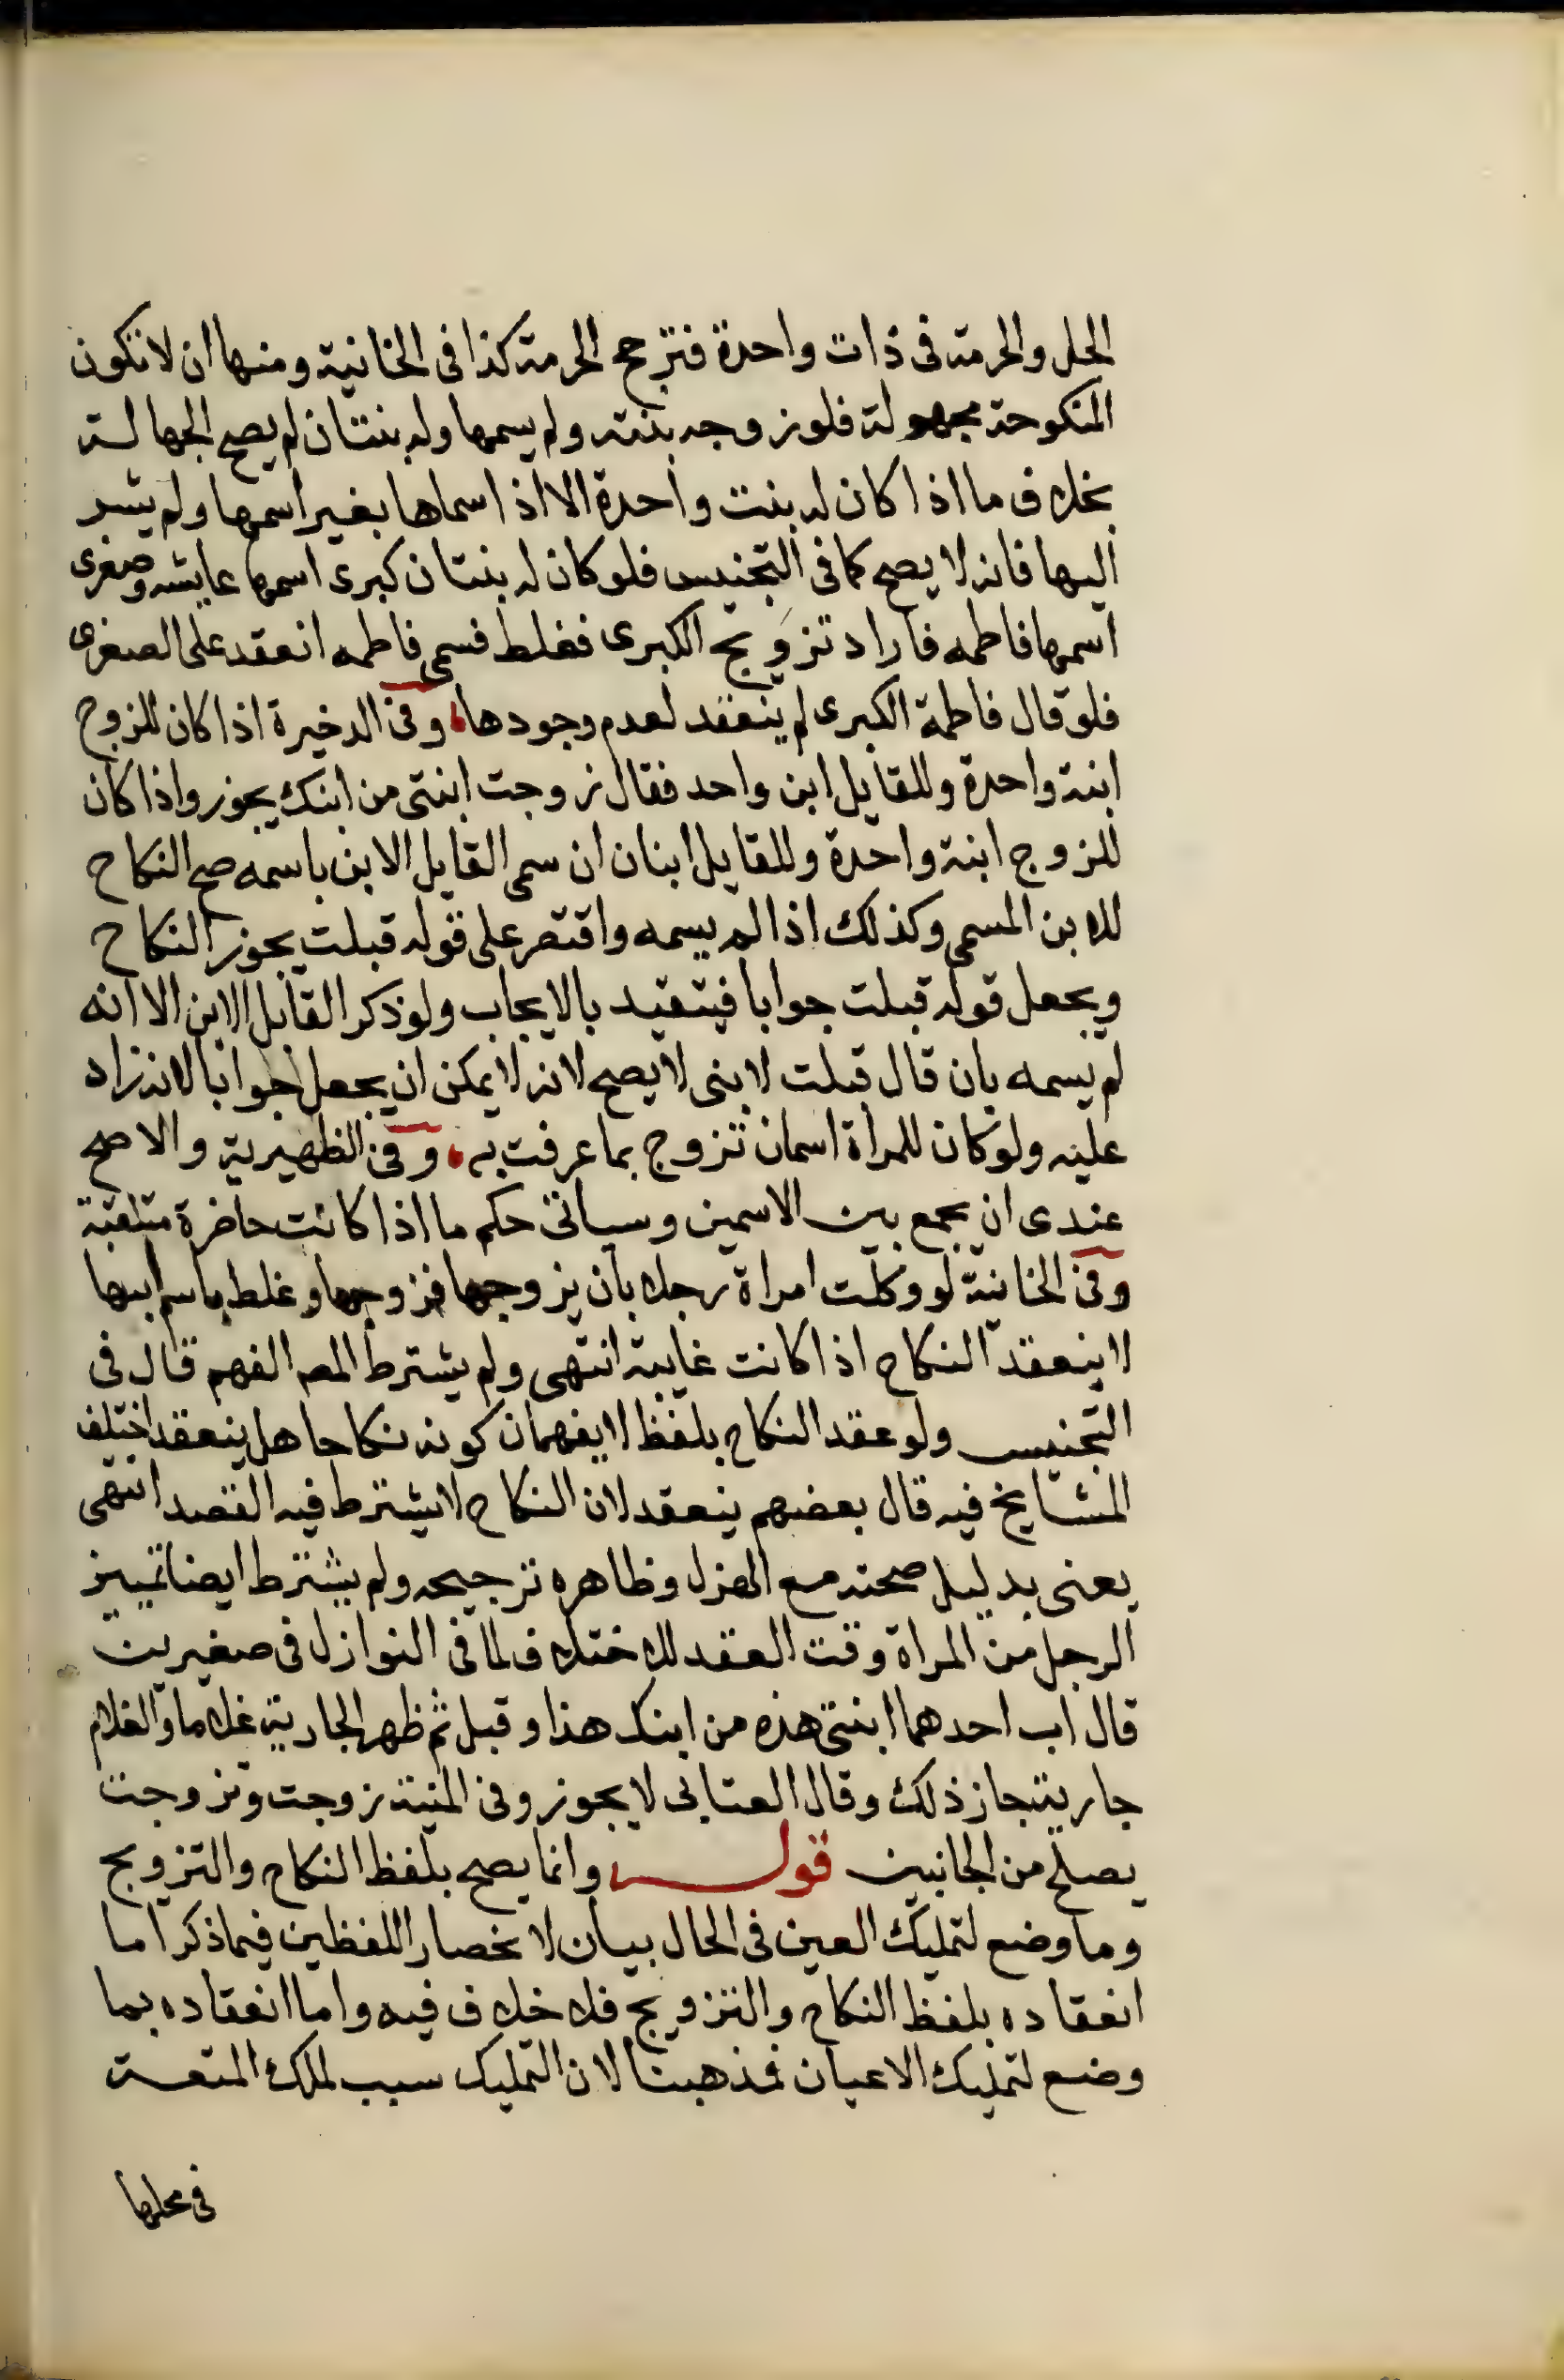 الحل والحرمة فى ذات واحدة فترجح الحرمة كذا فى الخانية ومنها ان لا تكون
المنكوحة مجهولة فلو زوجه بنته ولم يسمها وله بنتان لم يصح الجهالة
بخلاف ما اذا كان له بنت واحدة الا اذا سماها بغير اسمها ولم يشر
اليها فانه لا يصح كما فى التجنيس فلو كان له بنتان كبرى اسمها عايشه وصغرى
اسمها فاطمه فاراد تزويج الكبرى فغلط فسمى فاطمه انعقد على الصغرى
فلو قال فاطمة الكبرى لم ينعقد لعدم وجودها، وفى الدخيرة اذا كان للزوج
ابنة واحدة وللقايل ابن واحد فقال زوجت ابنتى من ابنك يجوز واذا كان
للزوج ابنة واحدة وللقايل ابنان ان سمى القايل الابن باسمه صح النكاح
للابن المسمى وكذلك اذا لم يسمه واقتصر على قوله قبلت يجوز النكاح
ويجعل قوله قبلت جوابا فيتقيد بالايجاب ولو ذكر القايل الابن الا انه
لم يسمه بان قال قبلت لابنى لا يصح لانه لا يمكن ان يجعل جوابا لانه زاد
عليه ولو كان للمراة اسمان تزوج بما عرفت به، وفى الظهيرية والاصح
عندى ان يجمع بين الاسمين وسياتى حكم ما اذا كانت حاضرة متنقبة
وفى الخانية لو وكلت امراة رجلا بان يزوجها فزوجها وغلط باسم ابيها
لا ينعقد النكاح اذا كانت غايبة انتهى ولم يشترط المص الفهم قال فى
التجنيس ولو عقد النكاح بلفظ لا يفهمان كونه نكاحا هل ينعقد اختلف
المشايخ فيه قال بعضهم ينعقد لان النكاح لا يشترط فيه القصد انتهى
يعنى بدليل صحته مع الهزل وظاهره ترجيحه ولم يشترط ايضا تمييز
الرجل من المراة وقت العقد للاختلاف لما فى النوازل فى صغيرين
قال اب احدهما ابنتى هذه من ابنك هذا وقبل ثم ظهر الجارية غلاما والغلام
جارية جاز ذلك وقال العتابى لا يجوز وفى المنية زوجت وتزوجت
يصلح من الجانبين قوله وانما يصح بلفظ النكاح والتزويج
وما وضع لتمليك العين فى الحال بيان لانحصار اللفظين فيما ذكر اما
انعقاده بلفظ النكاح والتزويج فلا خلاف فيه واما انعقاده بما
وضع لتمليك الاعيان فمذهبنا لان التمليك سبب لملك المتعة
فى محلها